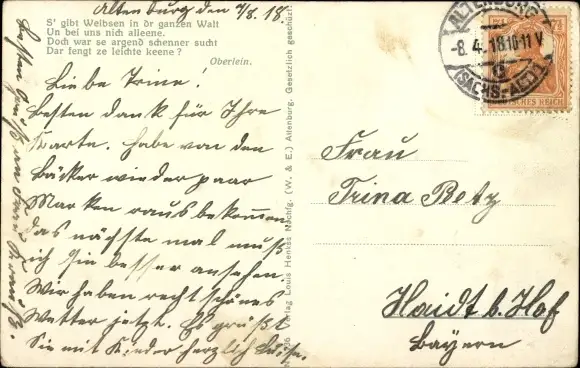 Altenburg den 7/8. 18.
S' gibt Weibsen in dr ganzen Walt
Un bei uns nich alleene.
Doch war se argend schenner sucht
Dar fengt ze leichte keene?
Oberlein.
Liebe Trine!
Besten Dank für Ihre
Karte. Habe von den
Bäcker wieder paar
Marken rausbekommen
das nächste mal muß
ich Sie besser ansehen.
Wir haben recht schönes
Wetter jetzt. Es grüßt
Sie mit Kinder herzlich Luise.
Verlag Louis Henkes Nachfg. (W. & E.) Altenburg. Gesetzlich geschützt
ALTENBURG
-8.4.18 10-11 V
G
(SACHS.-ALT.)
DEUTSCHES REICH
Frau
Trina Betz
Haidt b. Hof
Bayern